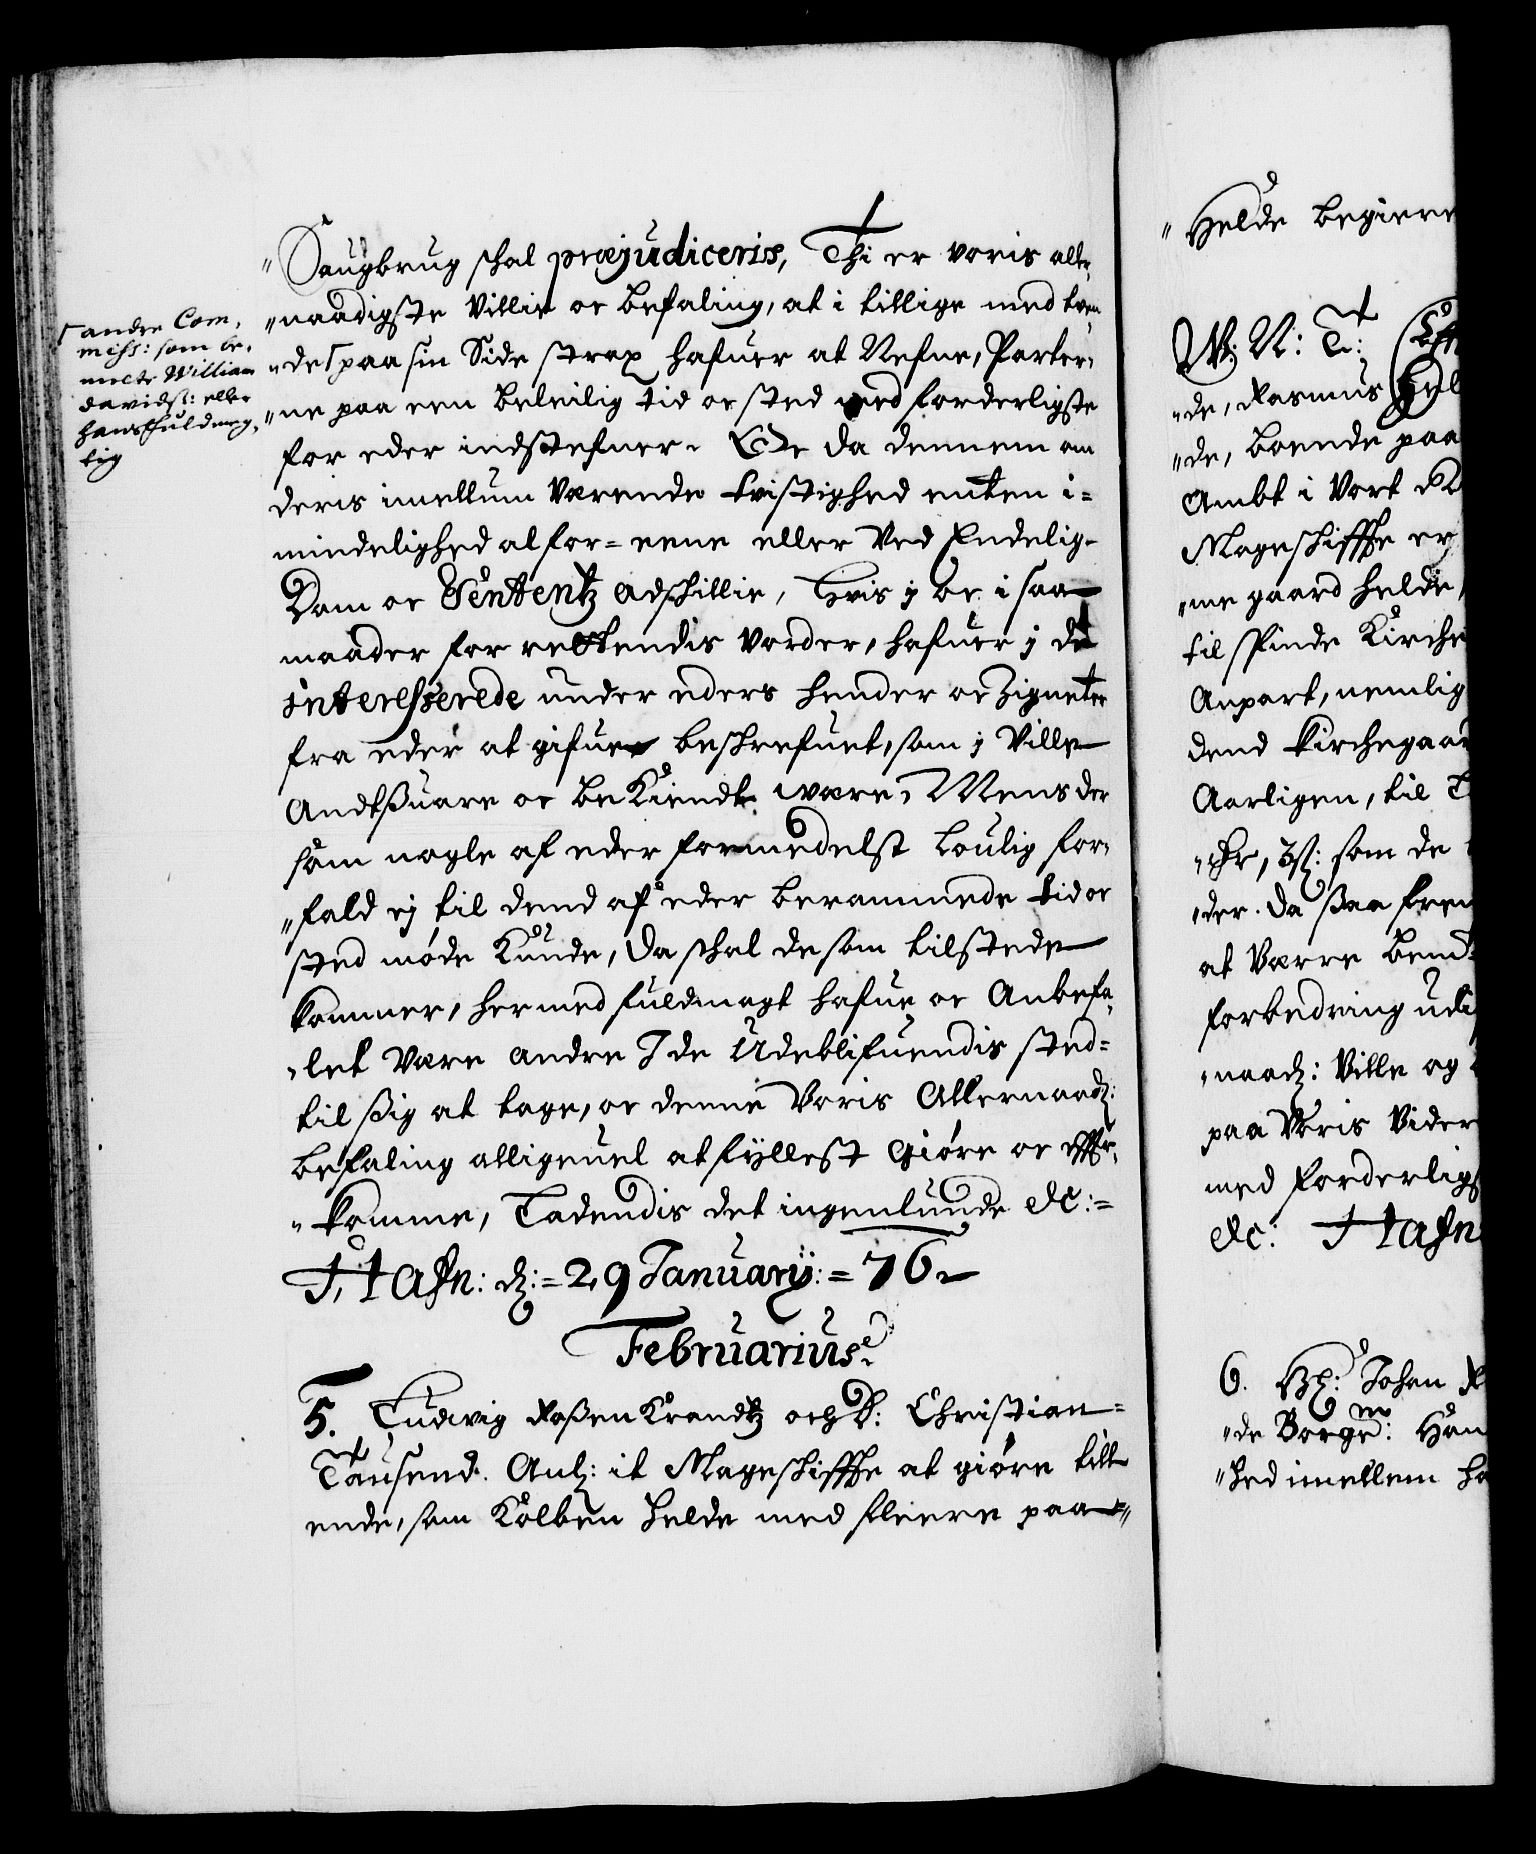 "Saugbrug schal præjudiceris, Thi er voris aller,
"naadigste Villie oc befaling, at i tillige med toen
"de paa sin Side strax hafuer at Nefne, Parter,
"ne paa een beleilig tid oc sted med forderligste
for eder indstefner. Eder da dennem om
deris imellum Værende tvistighed enten i=
mindelighed at for=eene eller Ved Endelig
Dom oc Sententz adschillie, Hvis j oc i saa
maader for rettendis vorder, hafuer j de
interesserede under eders hender oc Zigneter
fra eder at gifue beschrefuet, som j Ville
Andtsuare oc beKiendt være, Mens der
som nogle af eder formedelst Loulig for,
"fald ej til dend af eder berammede tid oc
sted møde Kunde, Da schal de som tilstede
kommer, hermed fuldmagt hafue oc Anbefa,
"let være andre J de Udeblifuendis sted=
til sig at tage, oc denne Voris Allernaad:
befaling alligeuel at fyllest Giøre oc effter,
"komme, Ladendis det ingenlunde &c:=
Hafn: d:=29 Januarij:=76
Februarius.
5. Ludvig RoßenKrandtz och D: Christian=
Tausend. Anl: it Mageschiffte at giøre till
ende, som Kolben Helde med fleere paa="
andre Com,
miss: som be,
melte William
Davids: eller
hans fuldmeg,
tig
"Helde begiere
W: N: T:
"de, Rasmus Hel
"de, boende paa
Ambt i Vort
Mageschiffte er
"me gaard Helde,
til Kirche
Anpart, nemlig
dend Kirchegaar
Aarligen, til
som de
"der. Da saa frem
at Værre
forbedring udi
"naad: Ville og
paa Voris Vider
med forderligs
&c: Hafn
6. Johan
"de Borge: Han
"hed imellem